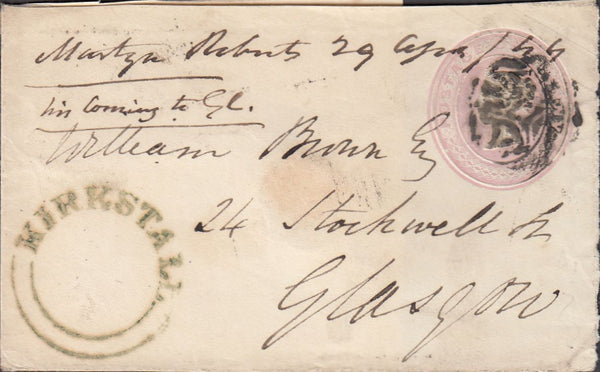 Martyn Roberts 29 April/44
his Coming to Gl.
William Brown Esq
24 Stockwell St
Glasgow
KIRKSTALL